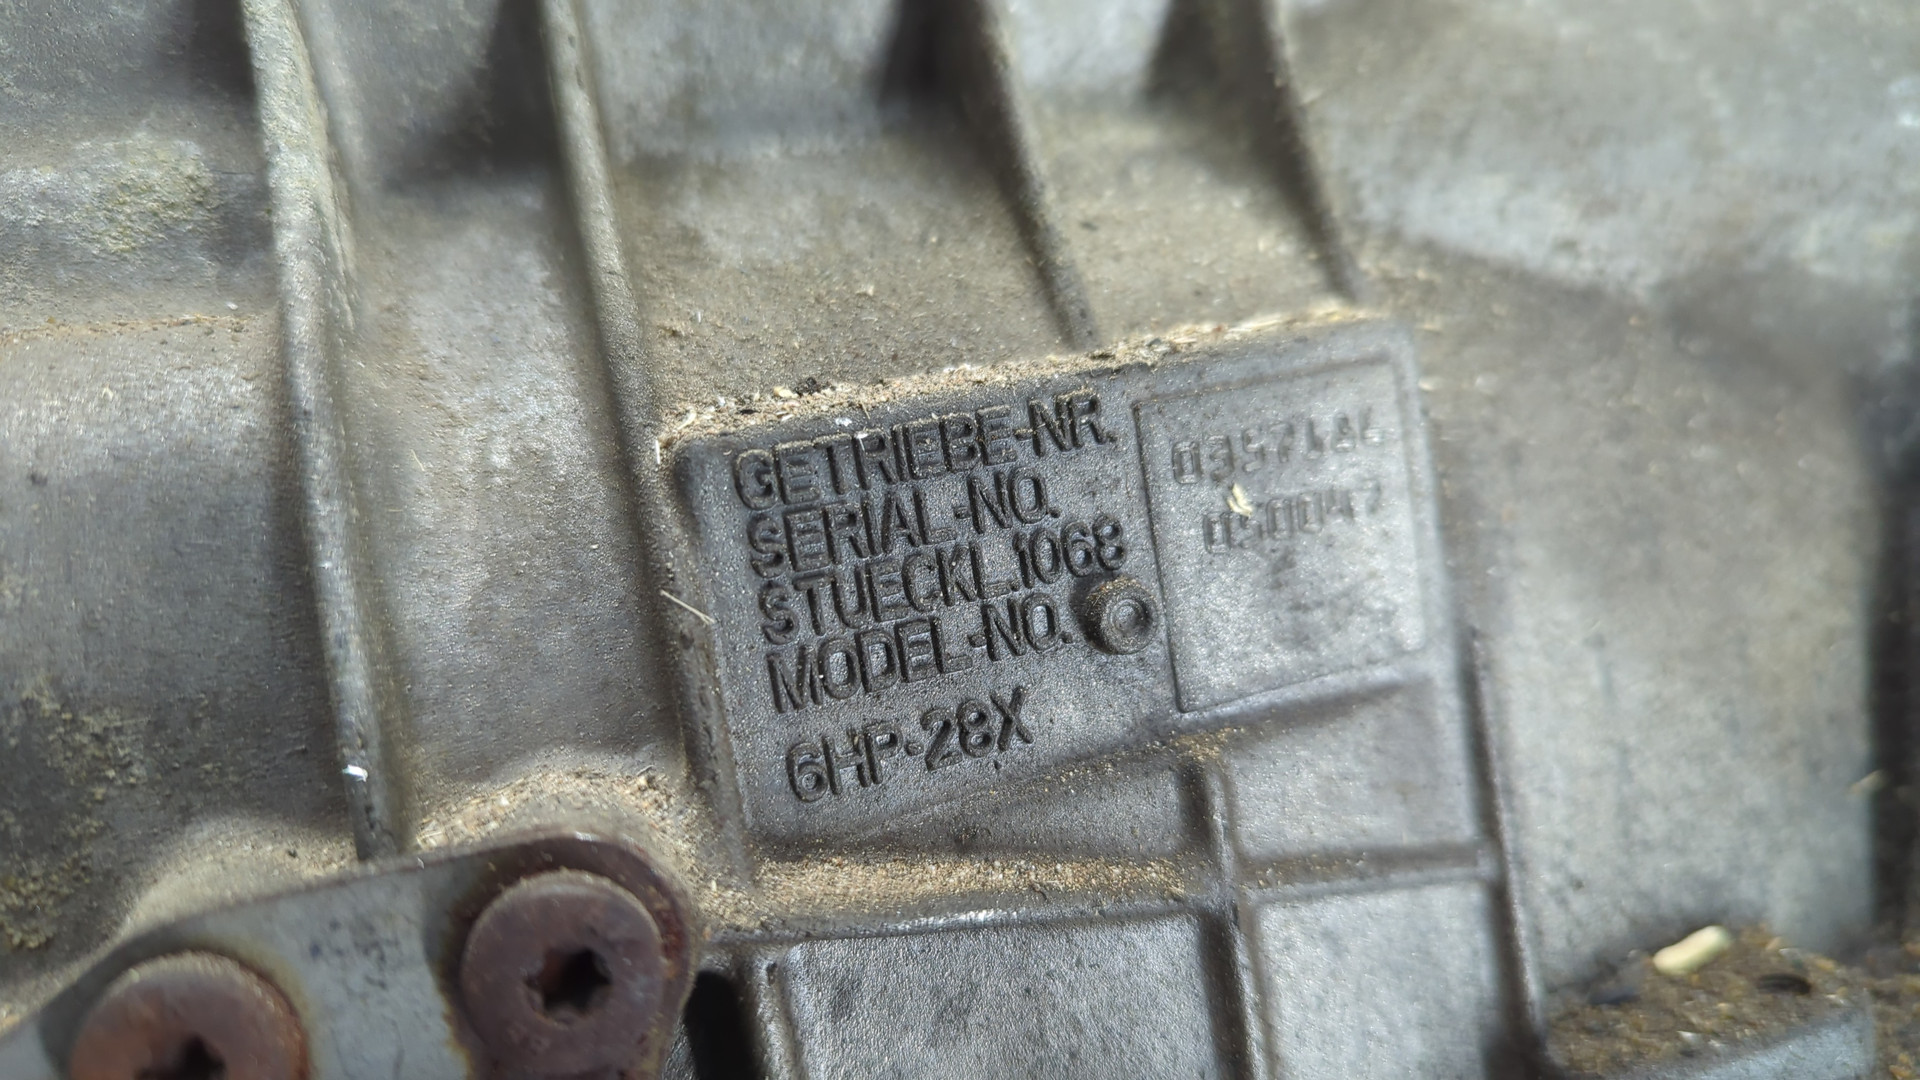 GETRIEBE-NR.
SERIAL-NO.
STUECKL.1068
MODEL-NO.
6HP-28X
050047